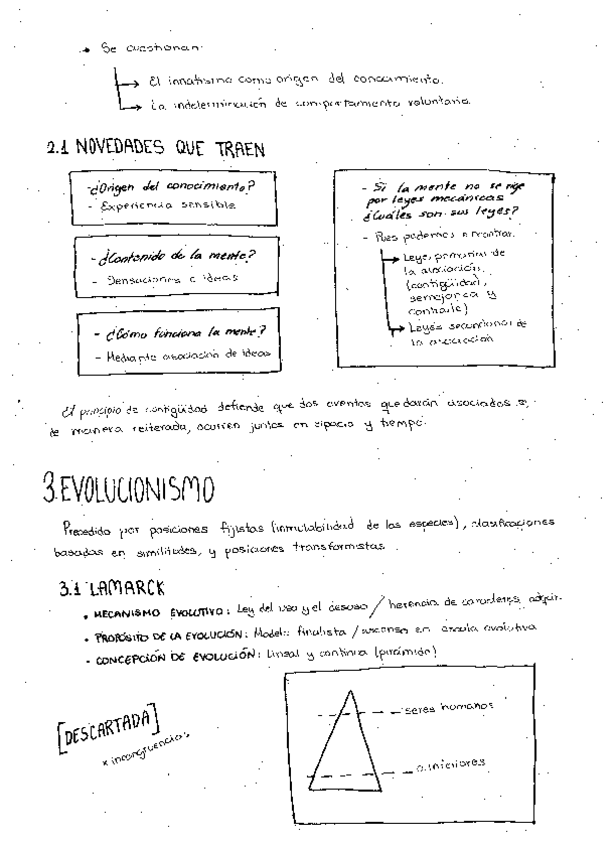 → Se cuestionan:
→ El innatismo como origen del conocimiento.
→ La indeterminación de comportamiento voluntario.
2.1 NOVEDADES QUE TRAEN
- ¿Origen del conocimiento?
- Experiencia sensible
- ¿Contenido de la mente?
- Sensaciones e ideas
- ¿Cómo funciona la mente?
- Mediante asociación de ideas
- Si la mente no se rige
por leyes mecánicas
¿Cuáles son sus leyes?
- Pues podemos encontrar:
→ Leyes primarias de
la asociación
(contigüidad,
semejanza y
contraste)
→ Leyes secundarias de
la asociación
El principio de contigüidad defiende que dos eventos quedarán asociados si,
de manera reiterada, ocurren juntos en espacio y tiempo.
3. EVOLUCIONISMO
Precedido por posiciones fijistas (inmutabilidad de las especies), clasificaciones
basadas en similitudes, y posiciones transformistas.
3.1 LAMARCK
• MECANISMO EVOLUTIVO: Ley del uso y el desuso / herencia de caracteres adquir.
• PROPÓSITO DE LA EVOLUCIÓN: Modelo finalista / ascenso en escala evolutiva
• CONCEPCIÓN DE EVOLUCIÓN: Lineal y continua (pirámide)
[DESCARTADA]
x incongruencias
seres humanos
o. inferiores